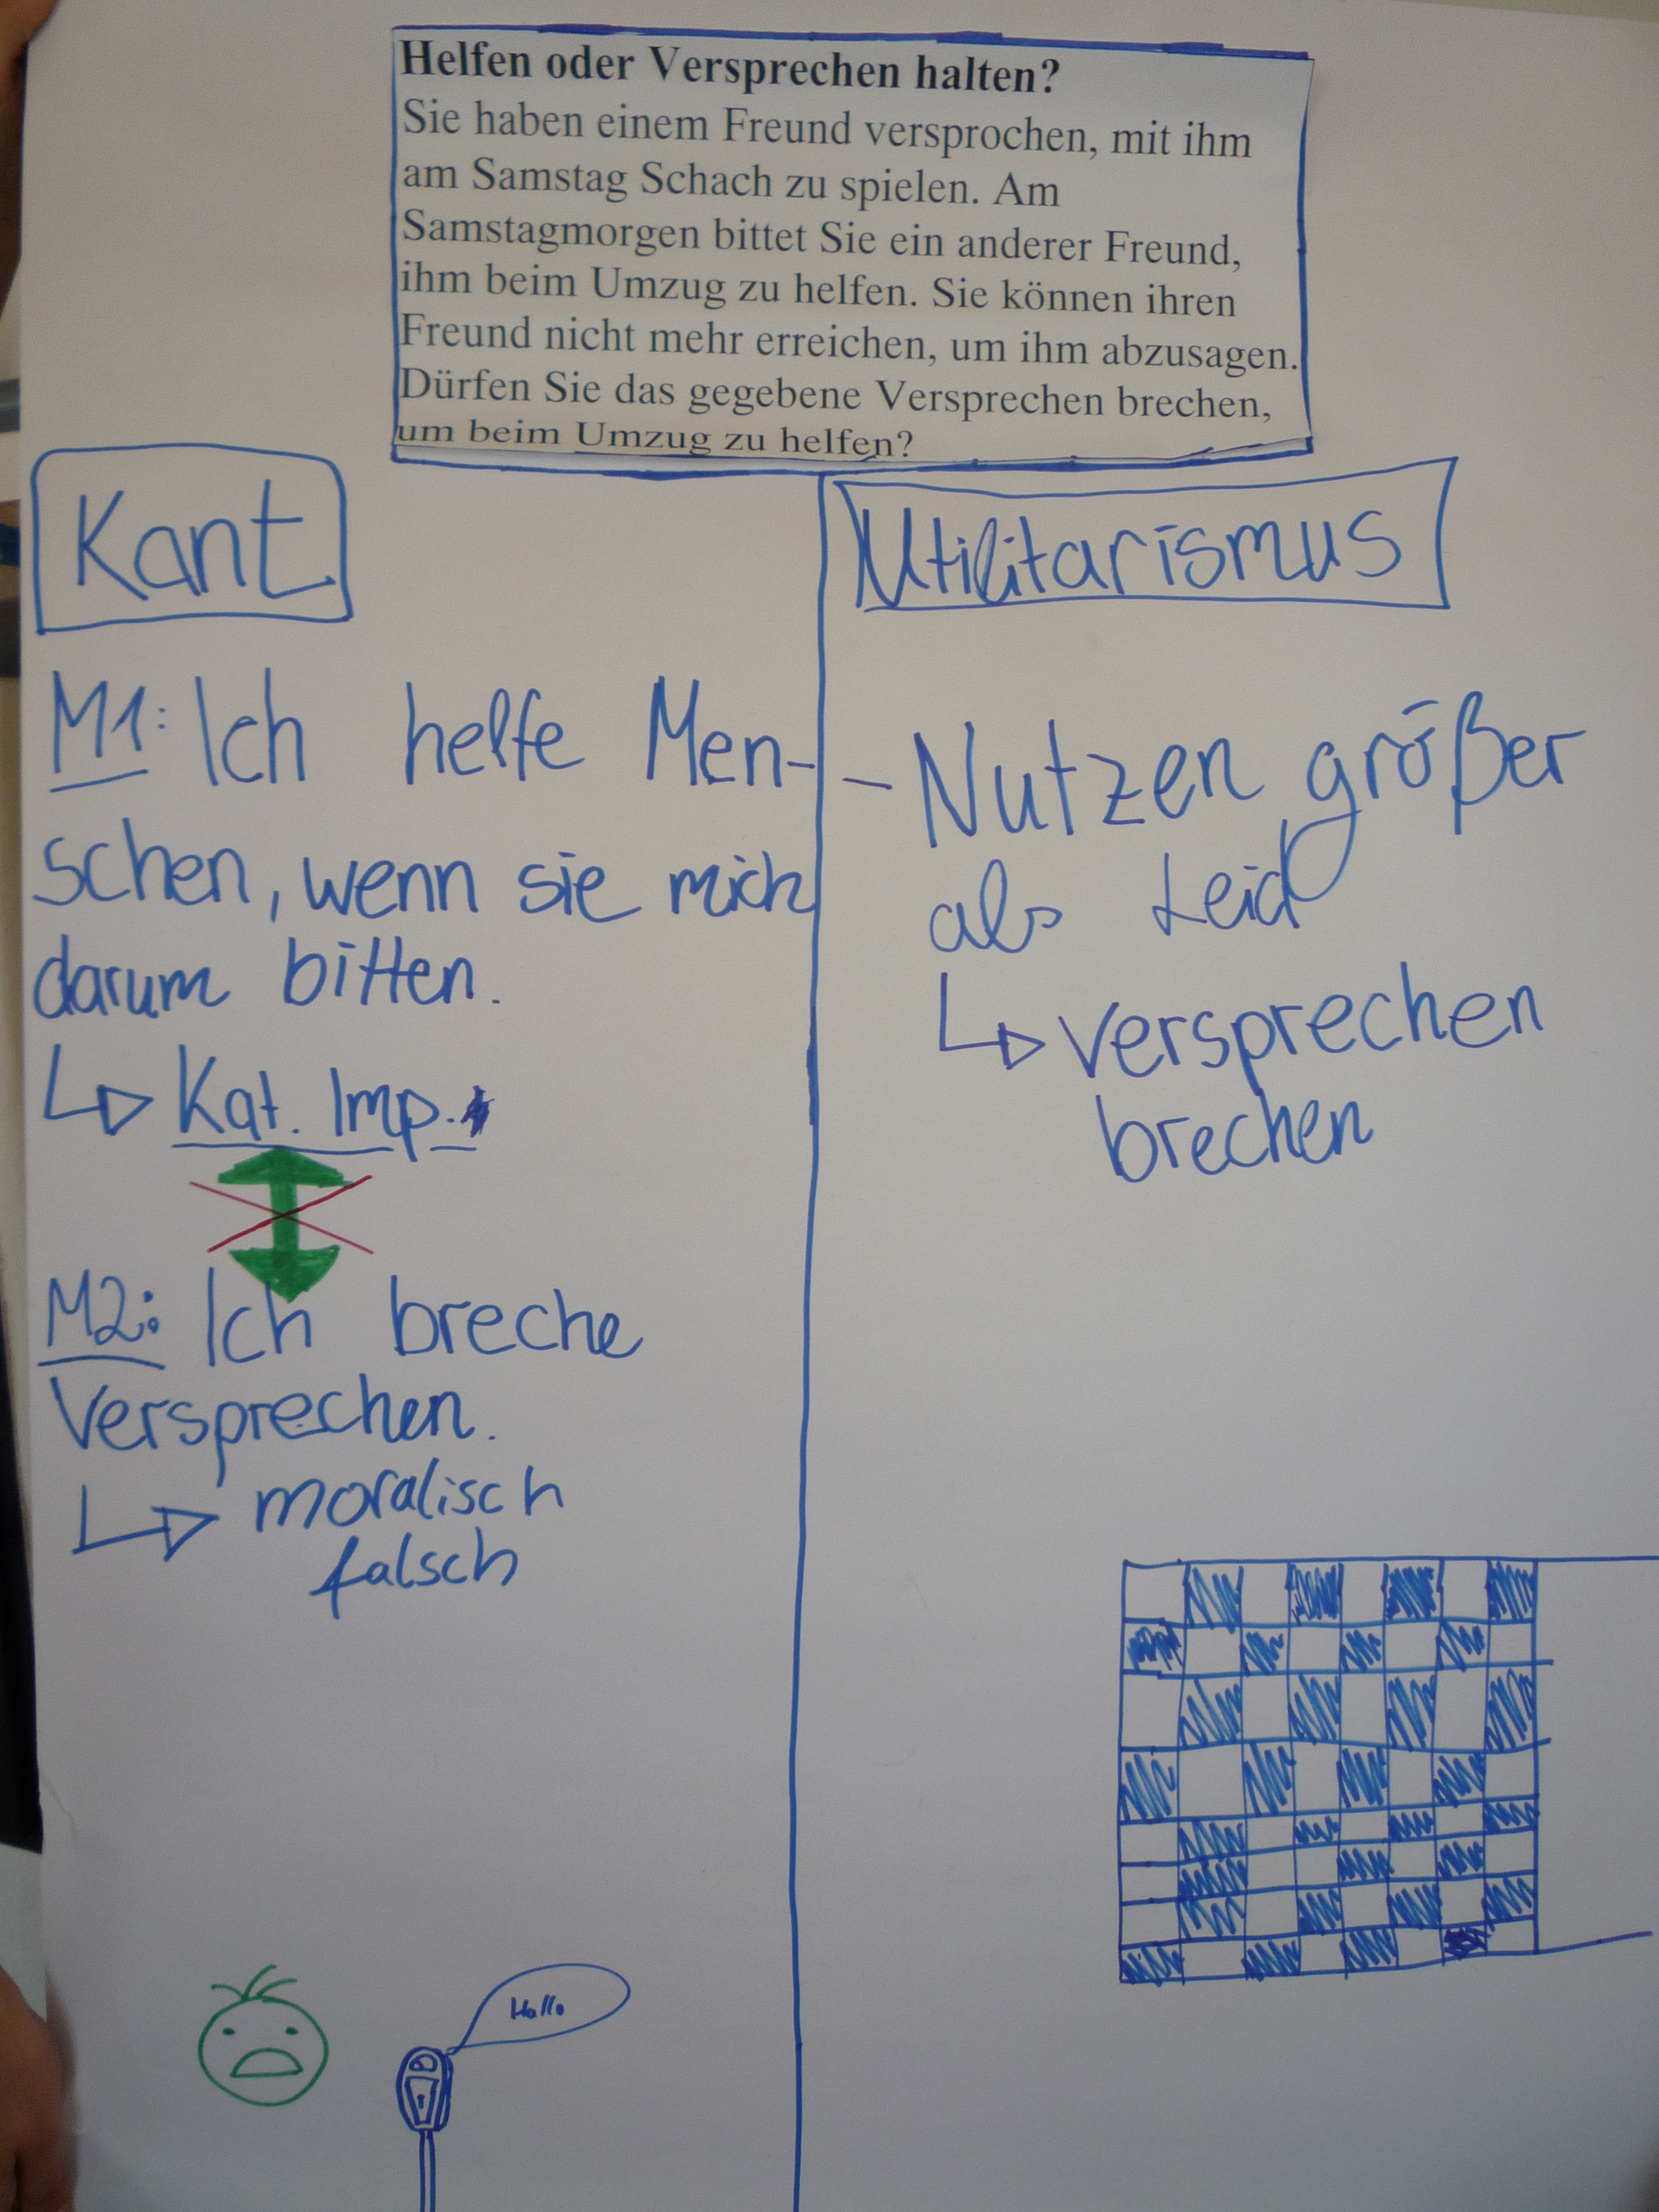 Helfen oder Versprechen halten?
Sie haben einem Freund versprochen, mit ihm
am Samstag Schach zu spielen. Am
Samstagmorgen bittet Sie ein anderer Freund,
ihm beim Umzug zu helfen. Sie können ihren
Freund nicht mehr erreichen, um ihm abzusagen.
Dürfen Sie das gegebene Versprechen brechen,
um beim Umzug zu helfen?
Kant
M1: Ich helfe Men-
schen, wenn sie mich
darum bitten.
Kat. Imp.
M2: Ich breche
Versprechen.
moralisch
falsch
Hallo
Utilitarismus
- Nutzen größer
als Leid
versprechen
brechen